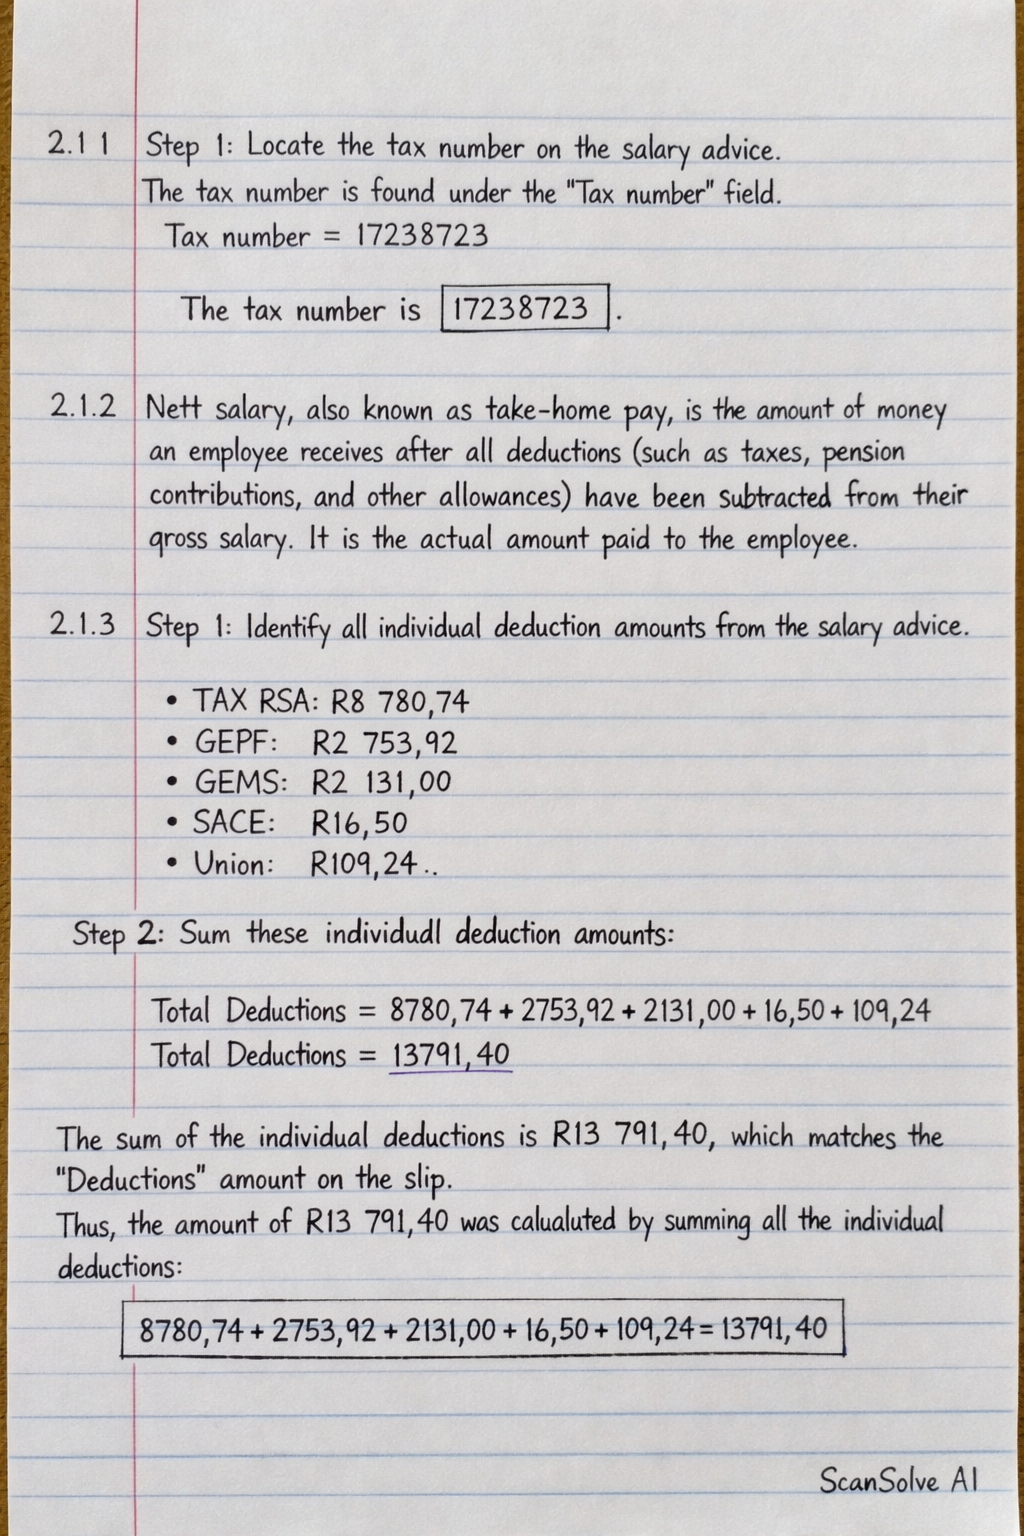 2.1 1 Step 1: Locate the tax number on the salary advice.
The tax number is found under the "Tax number" field.
Tax number = 17238723
The tax number is 17238723.
2.1.2 Nett salary, also known as take-home pay, is the amount of money
an employee receives after all deductions (such as taxes, pension
contributions, and other allowances) have been subtracted from their
gross salary. It is the actual amount paid to the employee.
2.1.3 Step 1: Identify all individual deduction amounts from the salary advice.
• TAX RSA: R8 780,74
• GEPF: R2 753,92
• GEMS: R2 131,00
• SACE: R16,50
• Union: R109,24..
Step 2: Sum these individudl deduction amounts:
Total Deductions = 8780,74 + 2753,92 + 2131,00 + 16,50 + 109,24
Total Deductions = 13791,40
The sum of the individual deductions is R13 791,40, which matches the
"Deductions" amount on the slip.
Thus, the amount of R13 791,40 was calualuted by summing all the individual
deductions:
8780,74 + 2753,92 + 2131,00 + 16,50 + 109,24 = 13791,40
ScanSolve AI